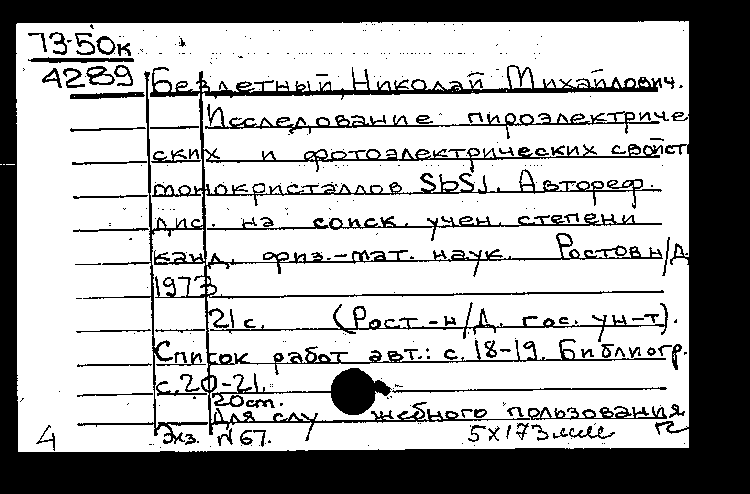 73-50к
4289
Бездетный, Николай Михайлович.
Исследование пироэлектриче
ских и фотоэлектрических свойств
монокристаллов SbSJ. Автореф.
дис. на соиск. учен. степени
канд. физ.-мат. наук. Ростов н/Д,
1973
21 с. (Рост.-н/Д. гос. ун-т).
Список работ авт.: с. 18-19. Библиогр.
с. 20-21.
20 см.
Для служебного пользования
4 Экз. №67. 5X173